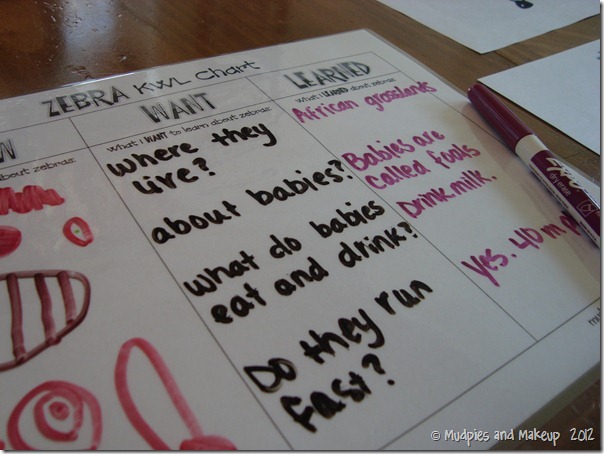 ZEBRA KWL Chart
WANT
What I WANT to learn about zebras
where they
live?
about babies?
what do babies
eat and drink?
Do they run
fast?
LEARNED
What I LEARNED about zebras
African grasslands
Babies are
called foals
Drink milk.
yes. 40 m
W
about zebras
© Mudpies and Makeup 2012